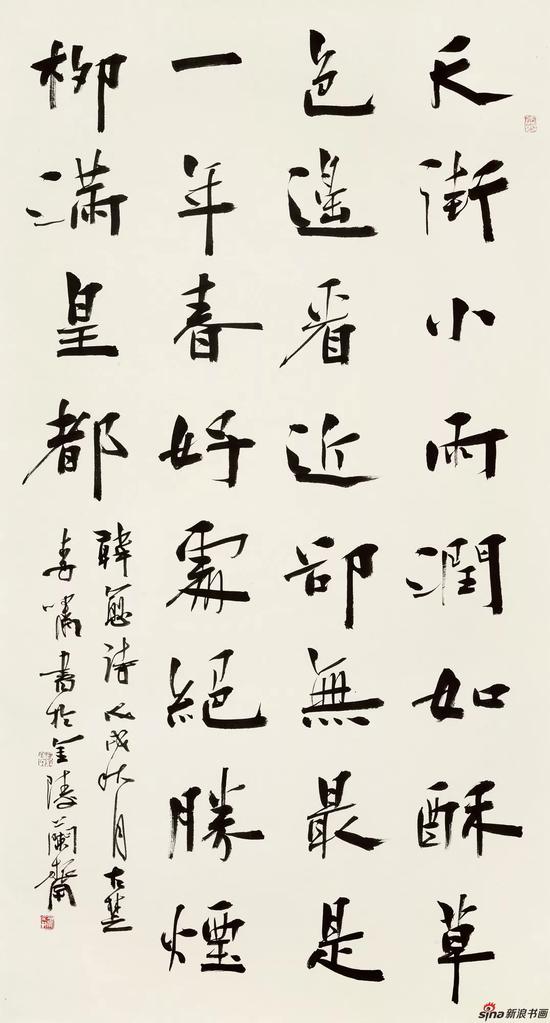 天街小雨潤如酥草
色遙看近卻無最是
一年春好處絕勝煙
柳滿皇都
韓愈詩戌秋月古楚
李嘯書於金陵蘭齋
sina新浪书画